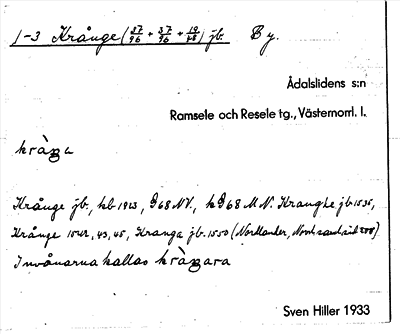 1-3 Krånge (37/96 + 37/96 + 19/48) jb. By.
Ådalslidens s:n
Ramsele och Resele tg., Västernorrl. l.
kràŋa
Krånge jb., kb 1923, G 68 NV., h G 68 M N. Kranghe jb 1535,
Krånge 1542, 43, 45, Kranga jb. 1550 (Nordlander, Norrl. saml. sid 208)
Invånarna kallas kràŋara
Sven Hiller 1933